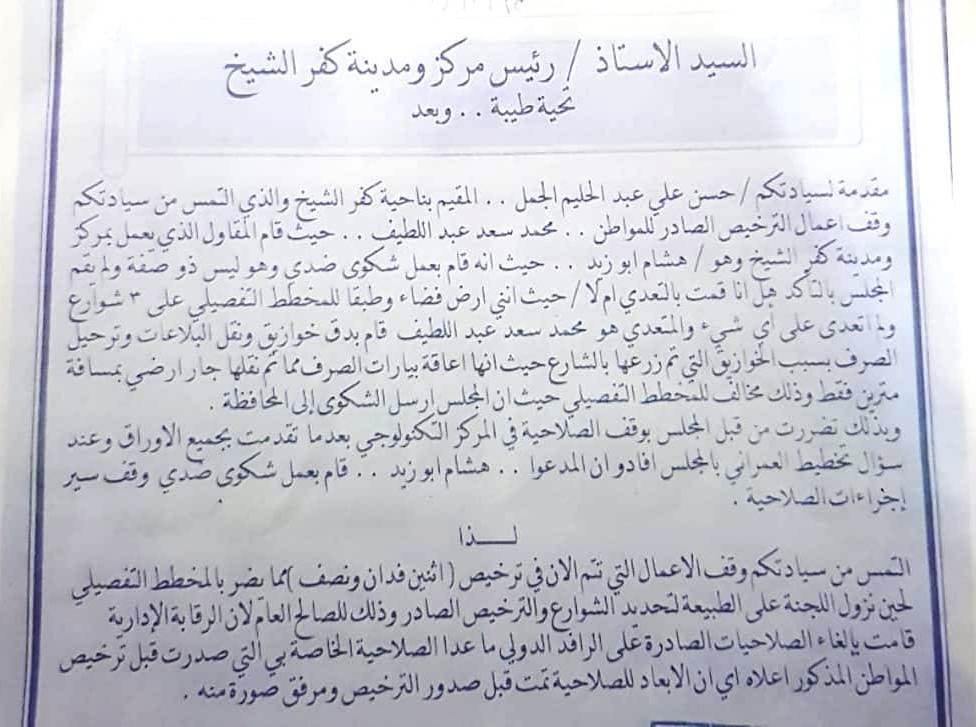 السيد الاستاذ / رئيس مركز ومدينة كفر الشيخ
تحية طيبة . . وبعد
مقدمة لسيادتكم / حسن علي عبد الحليم الجمل . . المقيم بناحية كفر الشيخ والذي التمس من سيادتكم
وقف اعمال الترخيص الصادر للمواطن . . محمد سعد عبد اللطيف . . حيث قام المقاول الذي يعمل بمركز
ومدينة كفر الشيخ وهو / هشام ابو زيد . . حيث انه قام بعمل شكوى ضدي وهو ليس ذو صفة ولم يقم
المجلس بالتأكد هل انا قمت بالتعدي ام لا / حيث انني ارض فضاء وطبقا للمخطط التفصيلي على ٣ شوارع
ولم اتعدى على أي شيء والمتعدي هو محمد سعد عبد اللطيف قام بدق خوازيق ونقل البلاعات وترحيل
الصرف بسبب الخوازيق التي تم زرعها بالشارع حيث انها اعاقة بيارات الصرف مما تم نقلها جار ارضي بمسافة
مترين فقط وذلك مخالف للمخطط التفصيلي حيث ان المجلس ارسل الشكوى إلى المحافظة .
وبذلك تضررت من قبل المجلس بوقف الصلاحية في المركز التكنولوجي بعدما تقدمت بجميع الاوراق وعند
سؤال تخطيط العمراني بالمجلس افادو ان المدعوا . . هشام ابو زيد . . قام بعمل شكوى ضدي وقف سير
إجراءات الصلاحية .
لـــذا
التمس من سيادتكم وقف الاعمال التي تتم الان في ترخيص ( اثنين فدان ونصف ) مما يضر بالمخطط التفصيلي
لحين نزول اللجنة على الطبيعة لتحديد الشوارع والترخيص الصادر وذلك للصالح العام لان الرقابة الإدارية
قامت بإلغاء الصلاحيات الصادرة على الرافد الدولي ما عدا الصلاحية الخاصة بي التي صدرت قبل ترخيص
المواطن المذكور اعلاه اي ان الابعاد للصلاحية تمت قبل صدور الترخيص ومرفق صورة منه .